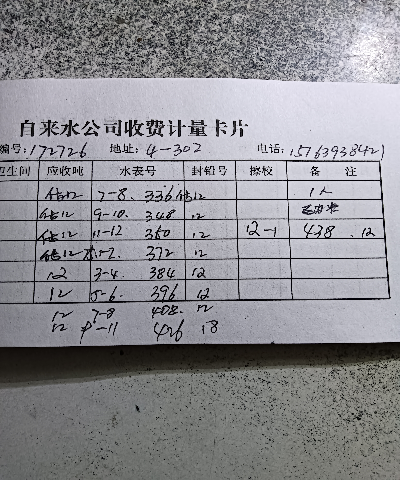 自来水公司收费计量卡片
编号:172726 地址:4-302 电话:15763938421
卫生间 应收吨 水表号 封铅号 擦校 备 注
估12 7-8. 336 估12 1人
估12 9-10. 348 12
估12 11-12 360 12 12-1 438 . 12
估12 1-2. 372 12
12 3-4. 384 12
12 5-6. 396 12
12 7-8 408. 12
12 9-11 426 18